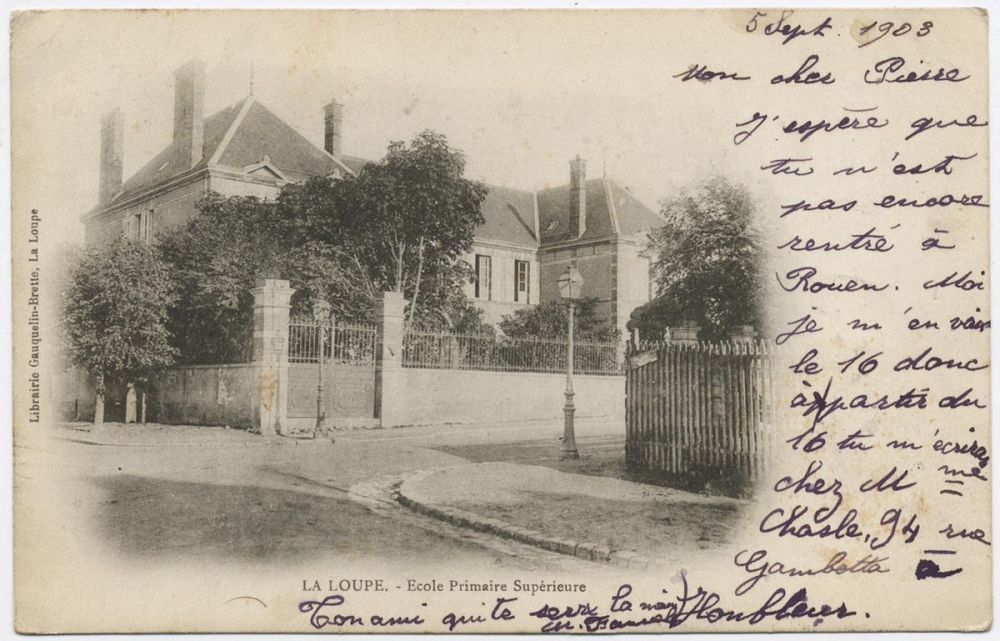 5 Sept. 1903
Mon cher Pierre
J'espère que
tu n'est
pas encore
rentré à
Rouen. Moi
je m'en vais
le 16 donc
à partir du
16 tu m'écriras
chez Mme
Chasle, 94 rue
Gambetta à
Honfleur.
Ton ami qui te serre la main
M.
LA LOUPE. - Ecole Primaire Supérieure
Librairie Gauquelin-Brette, La Loupe